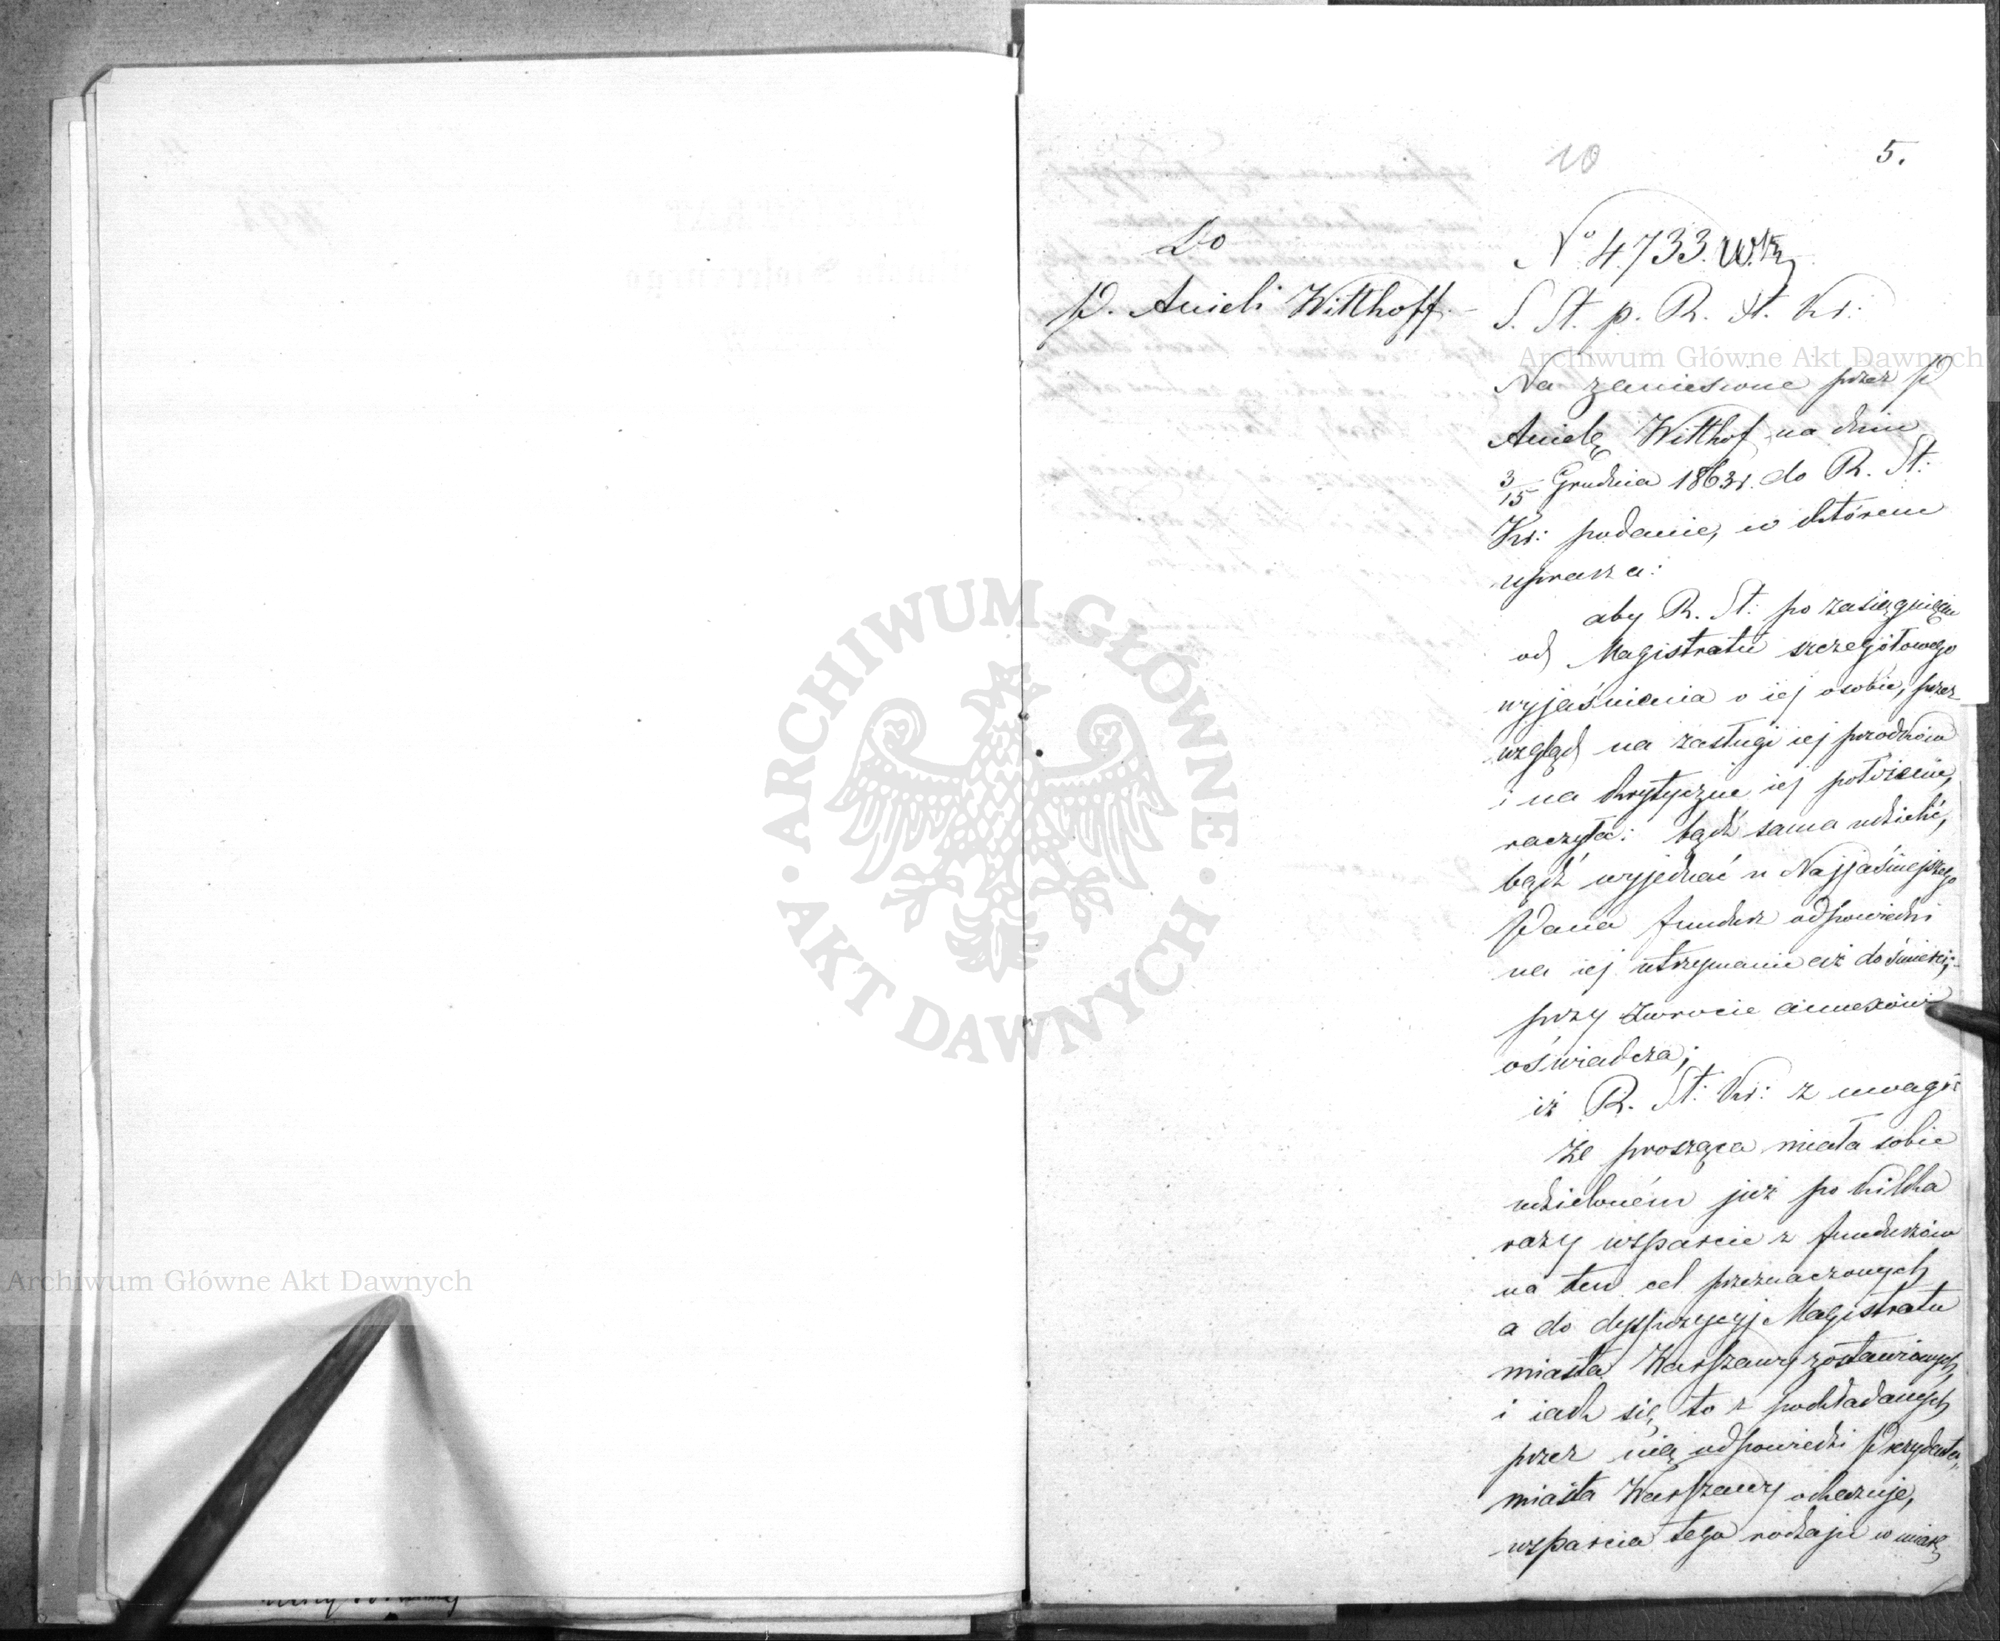 10
5.
Do
P. Anieli Witthoff.
No 4733.
S. St. p. R. St. Kr:
Na zaniesione przez P
Anielę Witthof na dniu
3/15 Grudnia 1863 r. do R. St:
Kr: podanie, w którem
uprasza:
aby R. St: po zasięgnięciu
od Magistratu szczegółowego
wyjaśnienia o iej osobie, przez
wzgląd na zasługi iej przodków
i na krytyczne iej położenie,
raczyła: bądź sama udzielić,
bądź wyjednać u Najjaśniejszego
Pana fundusz odpowiedni
na iej utrzymanie aż do śmierci;
przy zwrocie annexów
oświadcza;
iż R. St: Kr: z uwagi:
że prosząca miała sobie
udzielonem już po kilka
razy wsparcie z funduszów
na ten cel przeznaczonych
a do dyspozycyj Magistratu
miasta Warszawy zostawionych,
i iak się to z podkładanych
przez nią odpowiedzi Prezydenta
miasta Warszawy okazuje,
wsparcia tego rodzaju w miarę
Archiwum Główne Akt Dawnych
Archiwum Główne Akt Dawnych
ARCHIWUM GŁÓWNE · AKT DAWNYCH ·